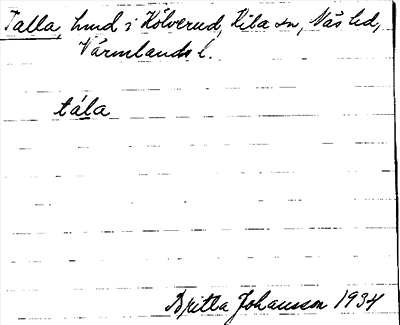 Talla, hmd i Hölverud, Kila sn, Näs hd,
Värmlands l.
tála
Britta Johansson 1934